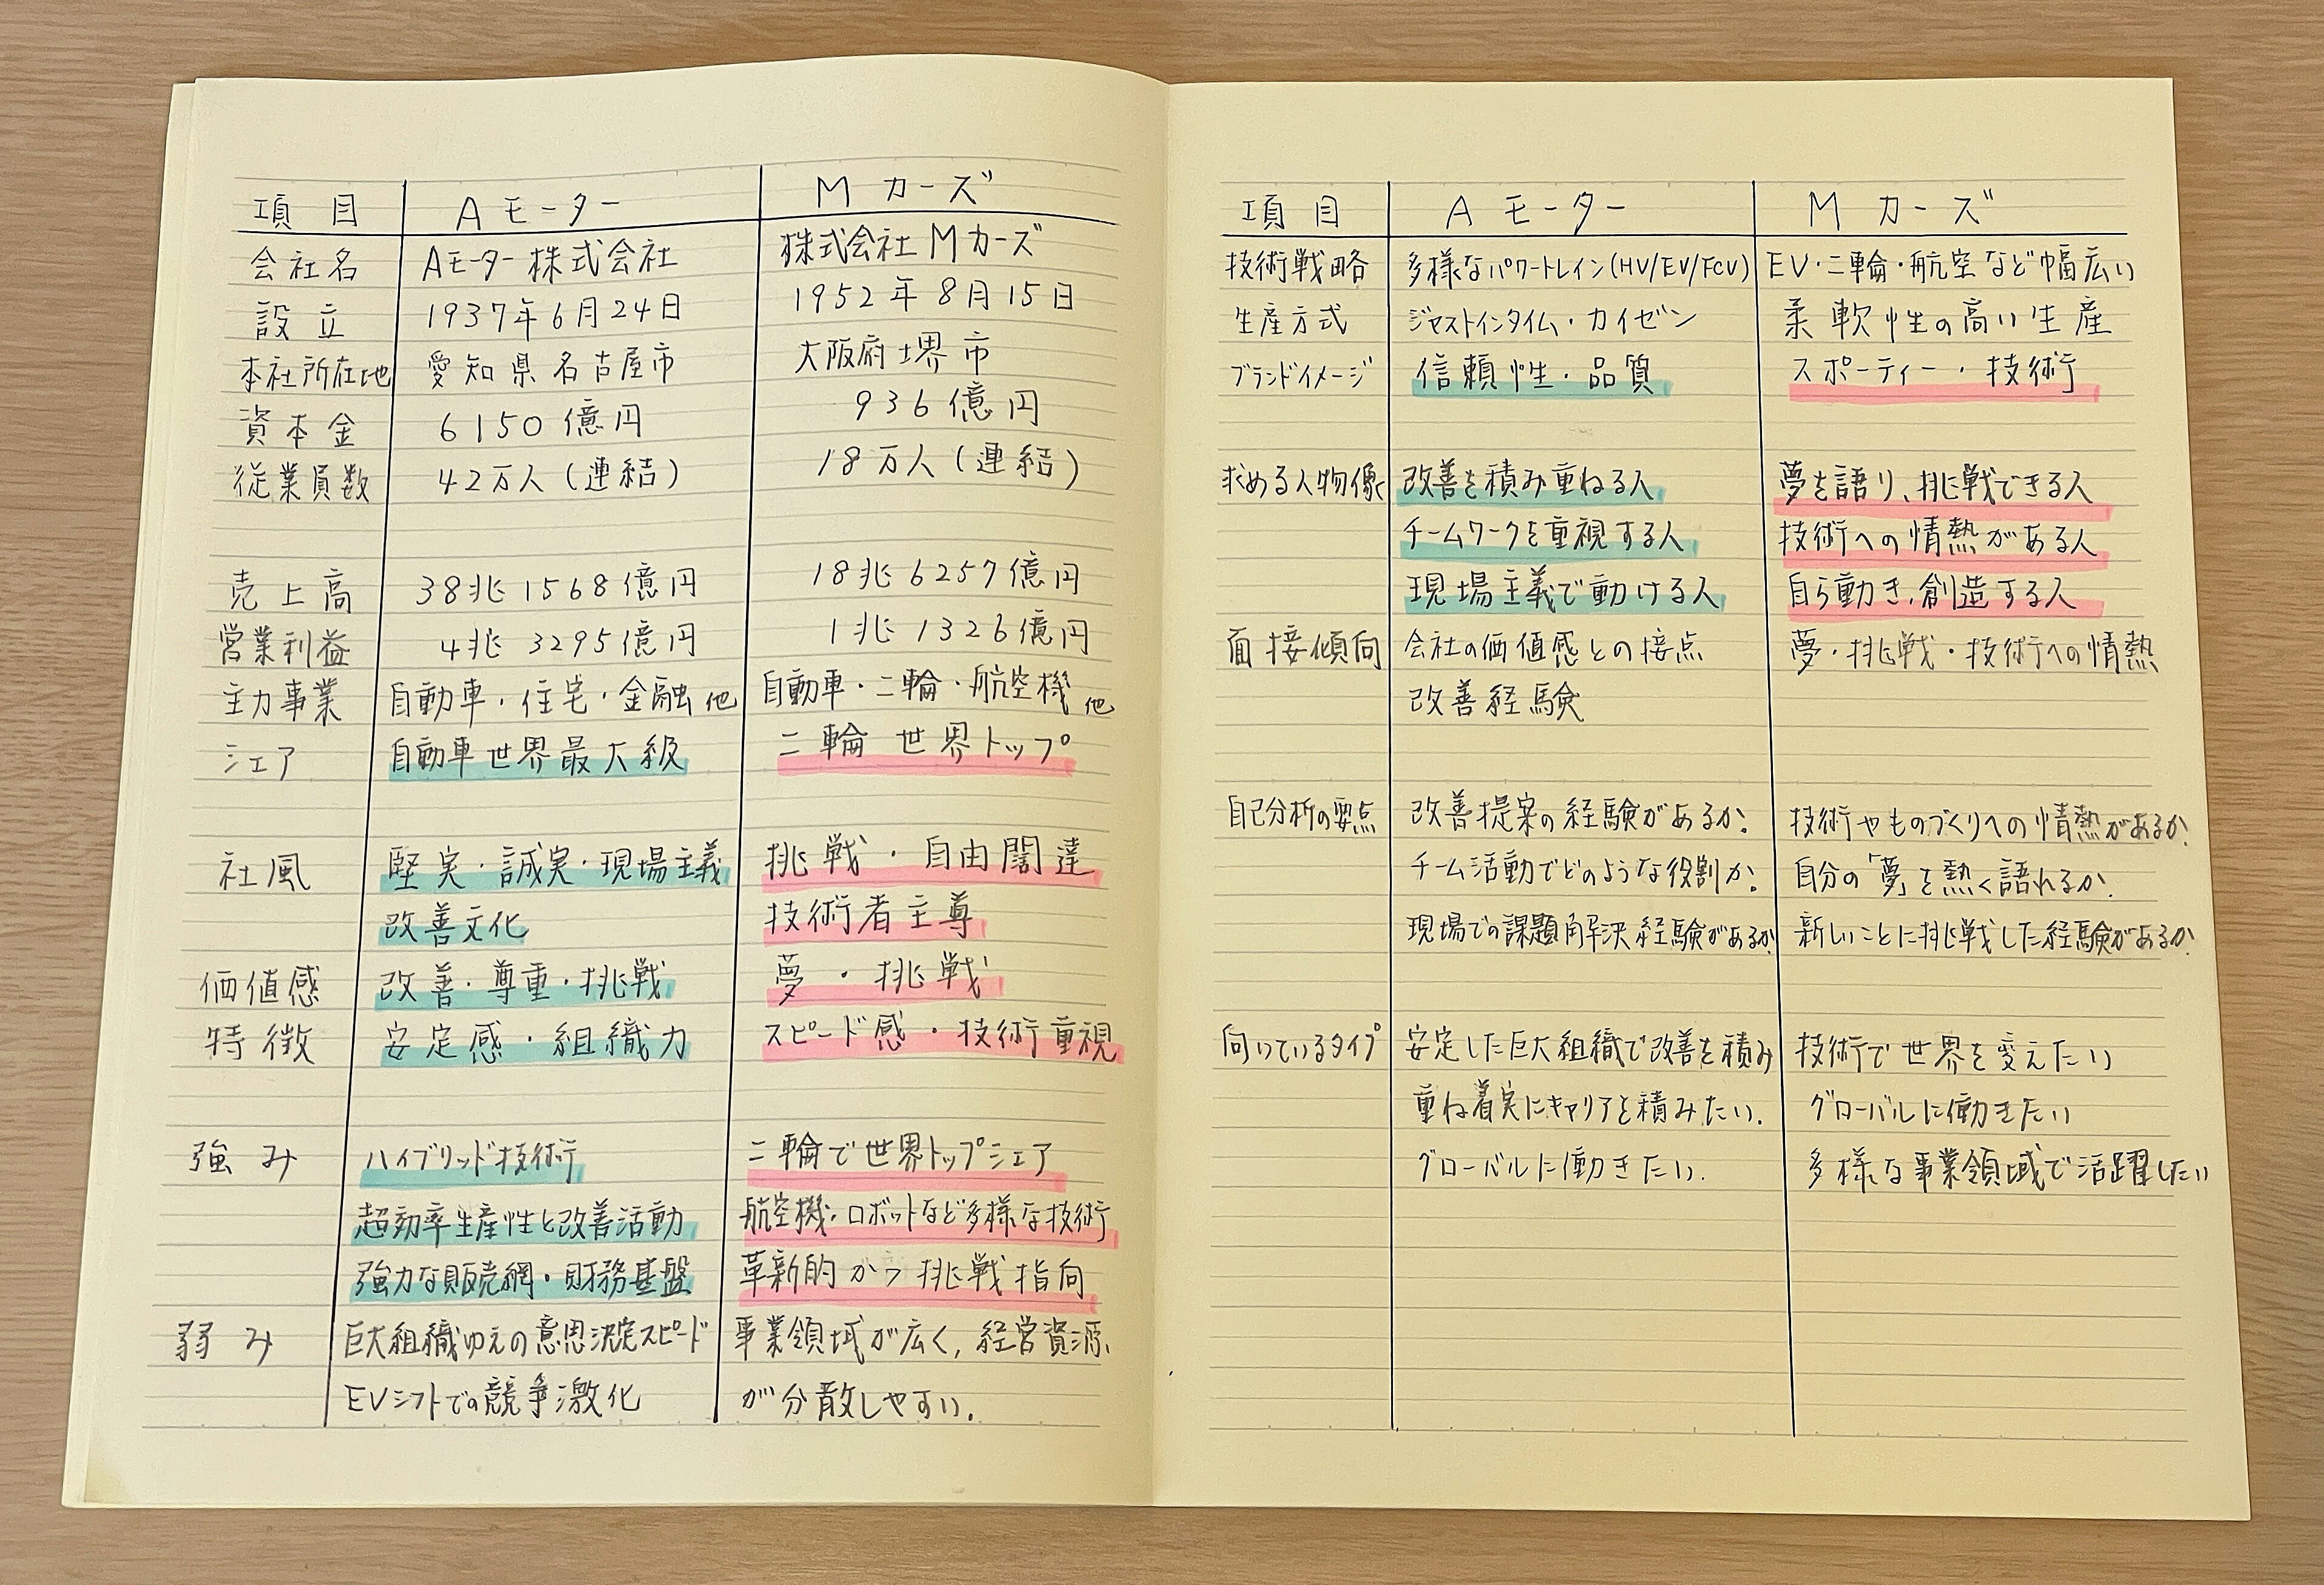 項目 Aモーター Mカーズ
会社名 Aモーター株式会社 株式会社Mカーズ
設立 1937年6月24日 1952年8月15日
本社所在地 愛知県名古屋市 大阪府堺市
資本金 6150億円 936億円
従業員数 42万人(連結) 18万人(連結)
売上高 38兆1568億円 18兆6257億円
営業利益 4兆3295億円 1兆1326億円
主力事業 自動車・住宅・金融他 自動車・二輪・航空機他
シェア 自動車世界最大級 二輪世界トップ
社風 堅実・誠実・現場主義 挑戦・自由闊達
改善文化 技術者主尊
価値感 改善・尊重・挑戦 夢・挑戦
特徴 安定感・組織力 スピード感・技術重視
強み ハイブリッド技術 二輪で世界トップシェア
超効率生産性と改善活動 航空機・ロボットなど多様な技術
強力な販売網・財務基盤 革新的かつ挑戦指向
弱み 巨大組織ゆえの意思決定スピード 事業領域が広く,経営資源
EVシフトでの競争激化 が分散しやすい.
項目 Aモーター Mカーズ
技術戦略 多様なパワートレイン(HV/EV/FCV) EV・二輪・航空など幅広い
生産方式 ジャストインタイム・カイゼン 柔軟性の高い生産
ブランドイメージ 信頼性・品質 スポーティー・技術
求める人物像 改善を積み重ねる人 夢を語り、挑戦できる人
チームワークを重視する人 技術への情熱がある人
現場主義で動ける人 自ら動き,創造する人
面接傾向 会社の価値感との接点 夢・挑戦・技術への情熱
改善経験
自己分析の要点 改善提案の経験があるか. 技術やものづくりへの情熱があるか.
チーム活動でどのような役割か. 自分の「夢」を熱く語れるか.
現場での課題解決経験があるか 新しいことに挑戦した経験があるか.
向いているタイプ 安定した巨大組織で改善を積み 技術で世界を変えたい
重ね着実にキャリアを積みたい. グローバルに働きたい
グローバルに働きたい. 多様な事業領域で活躍したい